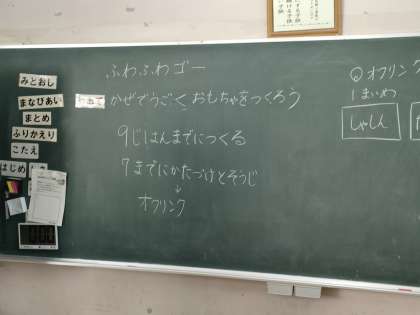 ふわふわゴー
かぜでうごく おもちゃをつくろう
9じはんまでにつくる
7までにかたづけとそうじ
↓
オフリンク
オフリンク
1まいめ
しゃしん
みとおし
まなびあい
まとめ
ふりかえり
こたえ
はじめ